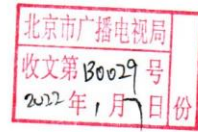 北京市广播电视局
收文第B0029号
2022年1月7日 份